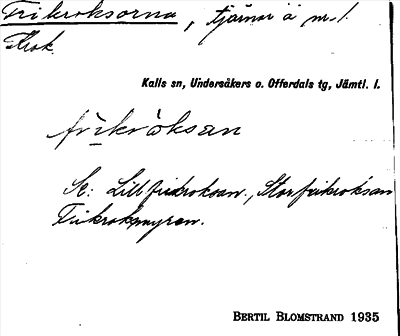 Trikroksorna, tjärnar å m. l.
Krok
Kalls sn, Undersåkers o. Offerdals tg, Jämtl. l.
frikròksan
Se: Lillfrikroksan, Storfrikroksan
Frikroksmyren.
BERTIL BLOMSTRAND 1935